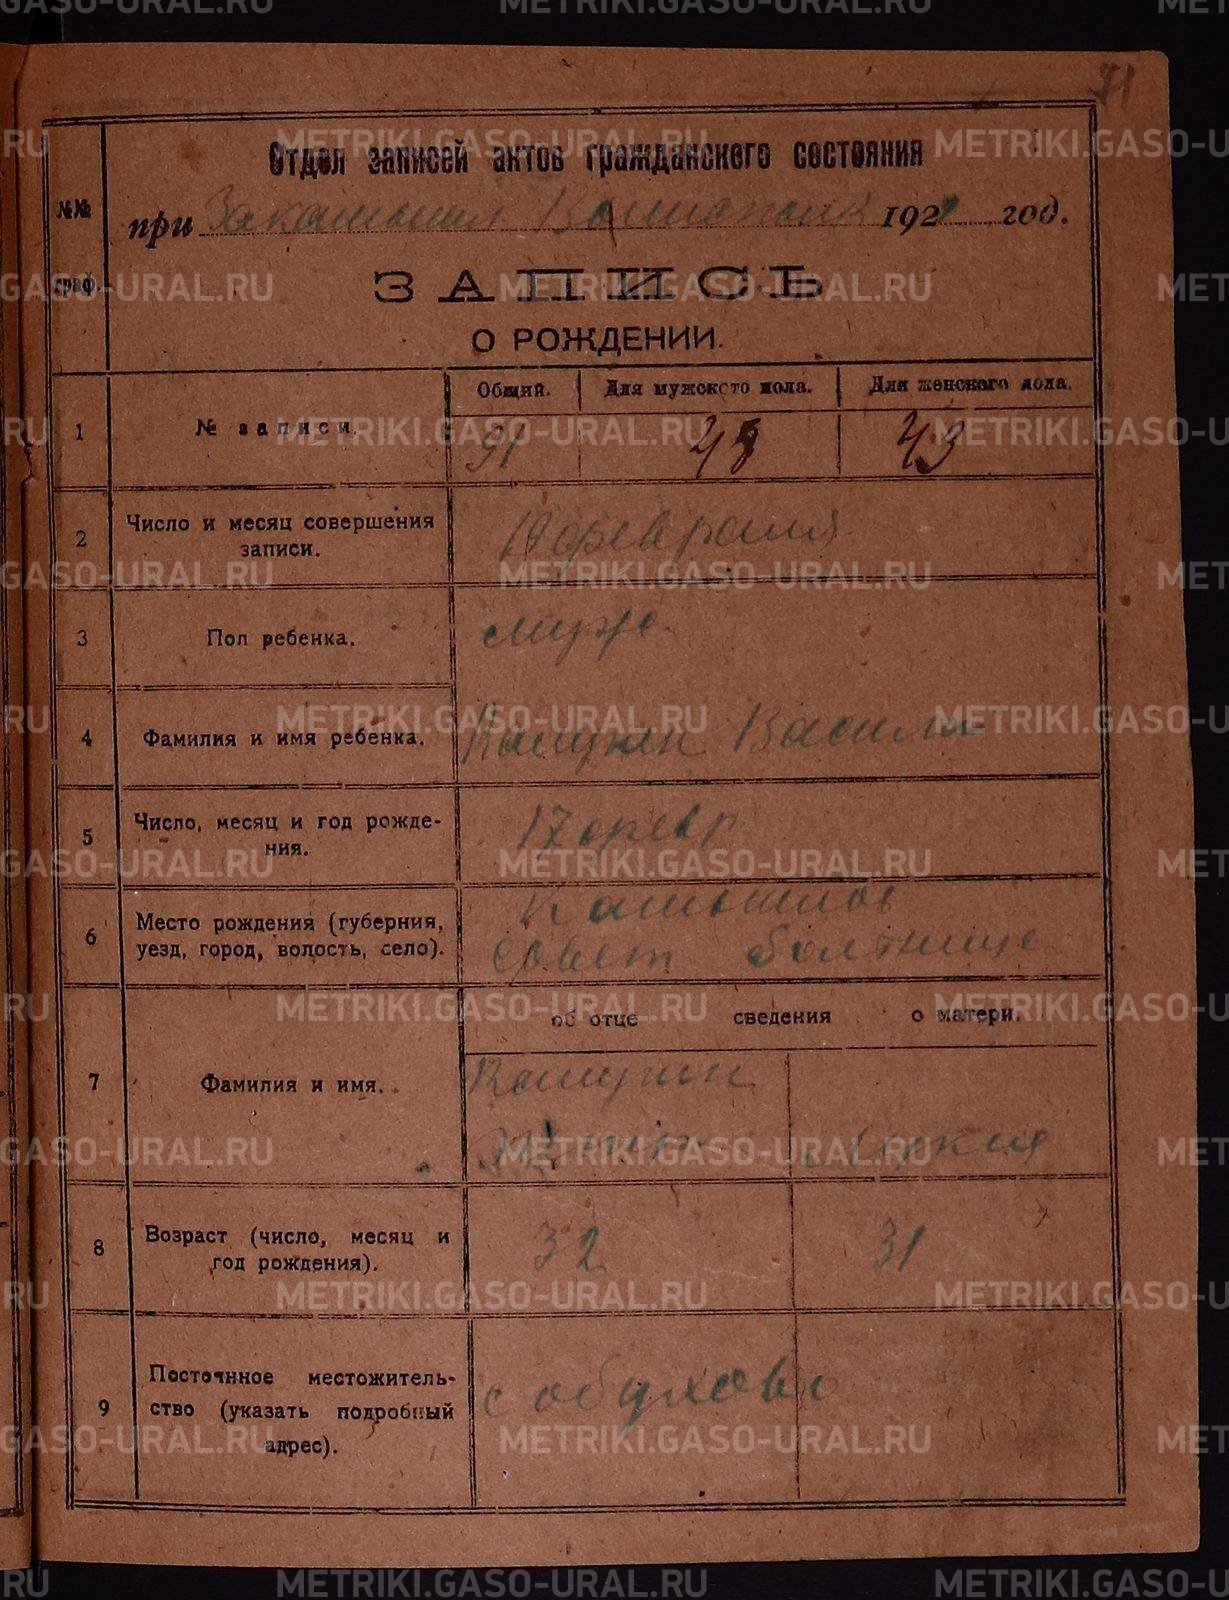 71
Отдел записей актов гражданского состояния
№№ граф.
при Закамышл 192 год.
ЗАПИСЬ
О РОЖДЕНИИ.
Общий. Для мужского пола. Для женского пола.
1 № записи. 91 48 43
2 Число и месяц совершения
записи.
19 февраля
3 Пол ребенка. муж.
4 Фамилия и имя ребенка. Василий
5 Число, месяц и год рожде-
ния.
17 февр
6 Место рождения (губерния,
уезд, город, волость, село).
Камышлов
Совет больнице
об отце сведения о матери.
7 Фамилия и имя.
Лукия
8 Возраст (число, месяц и
год рождения).
32 31
9 Постоянное местожитель-
ство (указать подробный
адрес).
с Обухово
METRIKI.GASO-URAL.RU